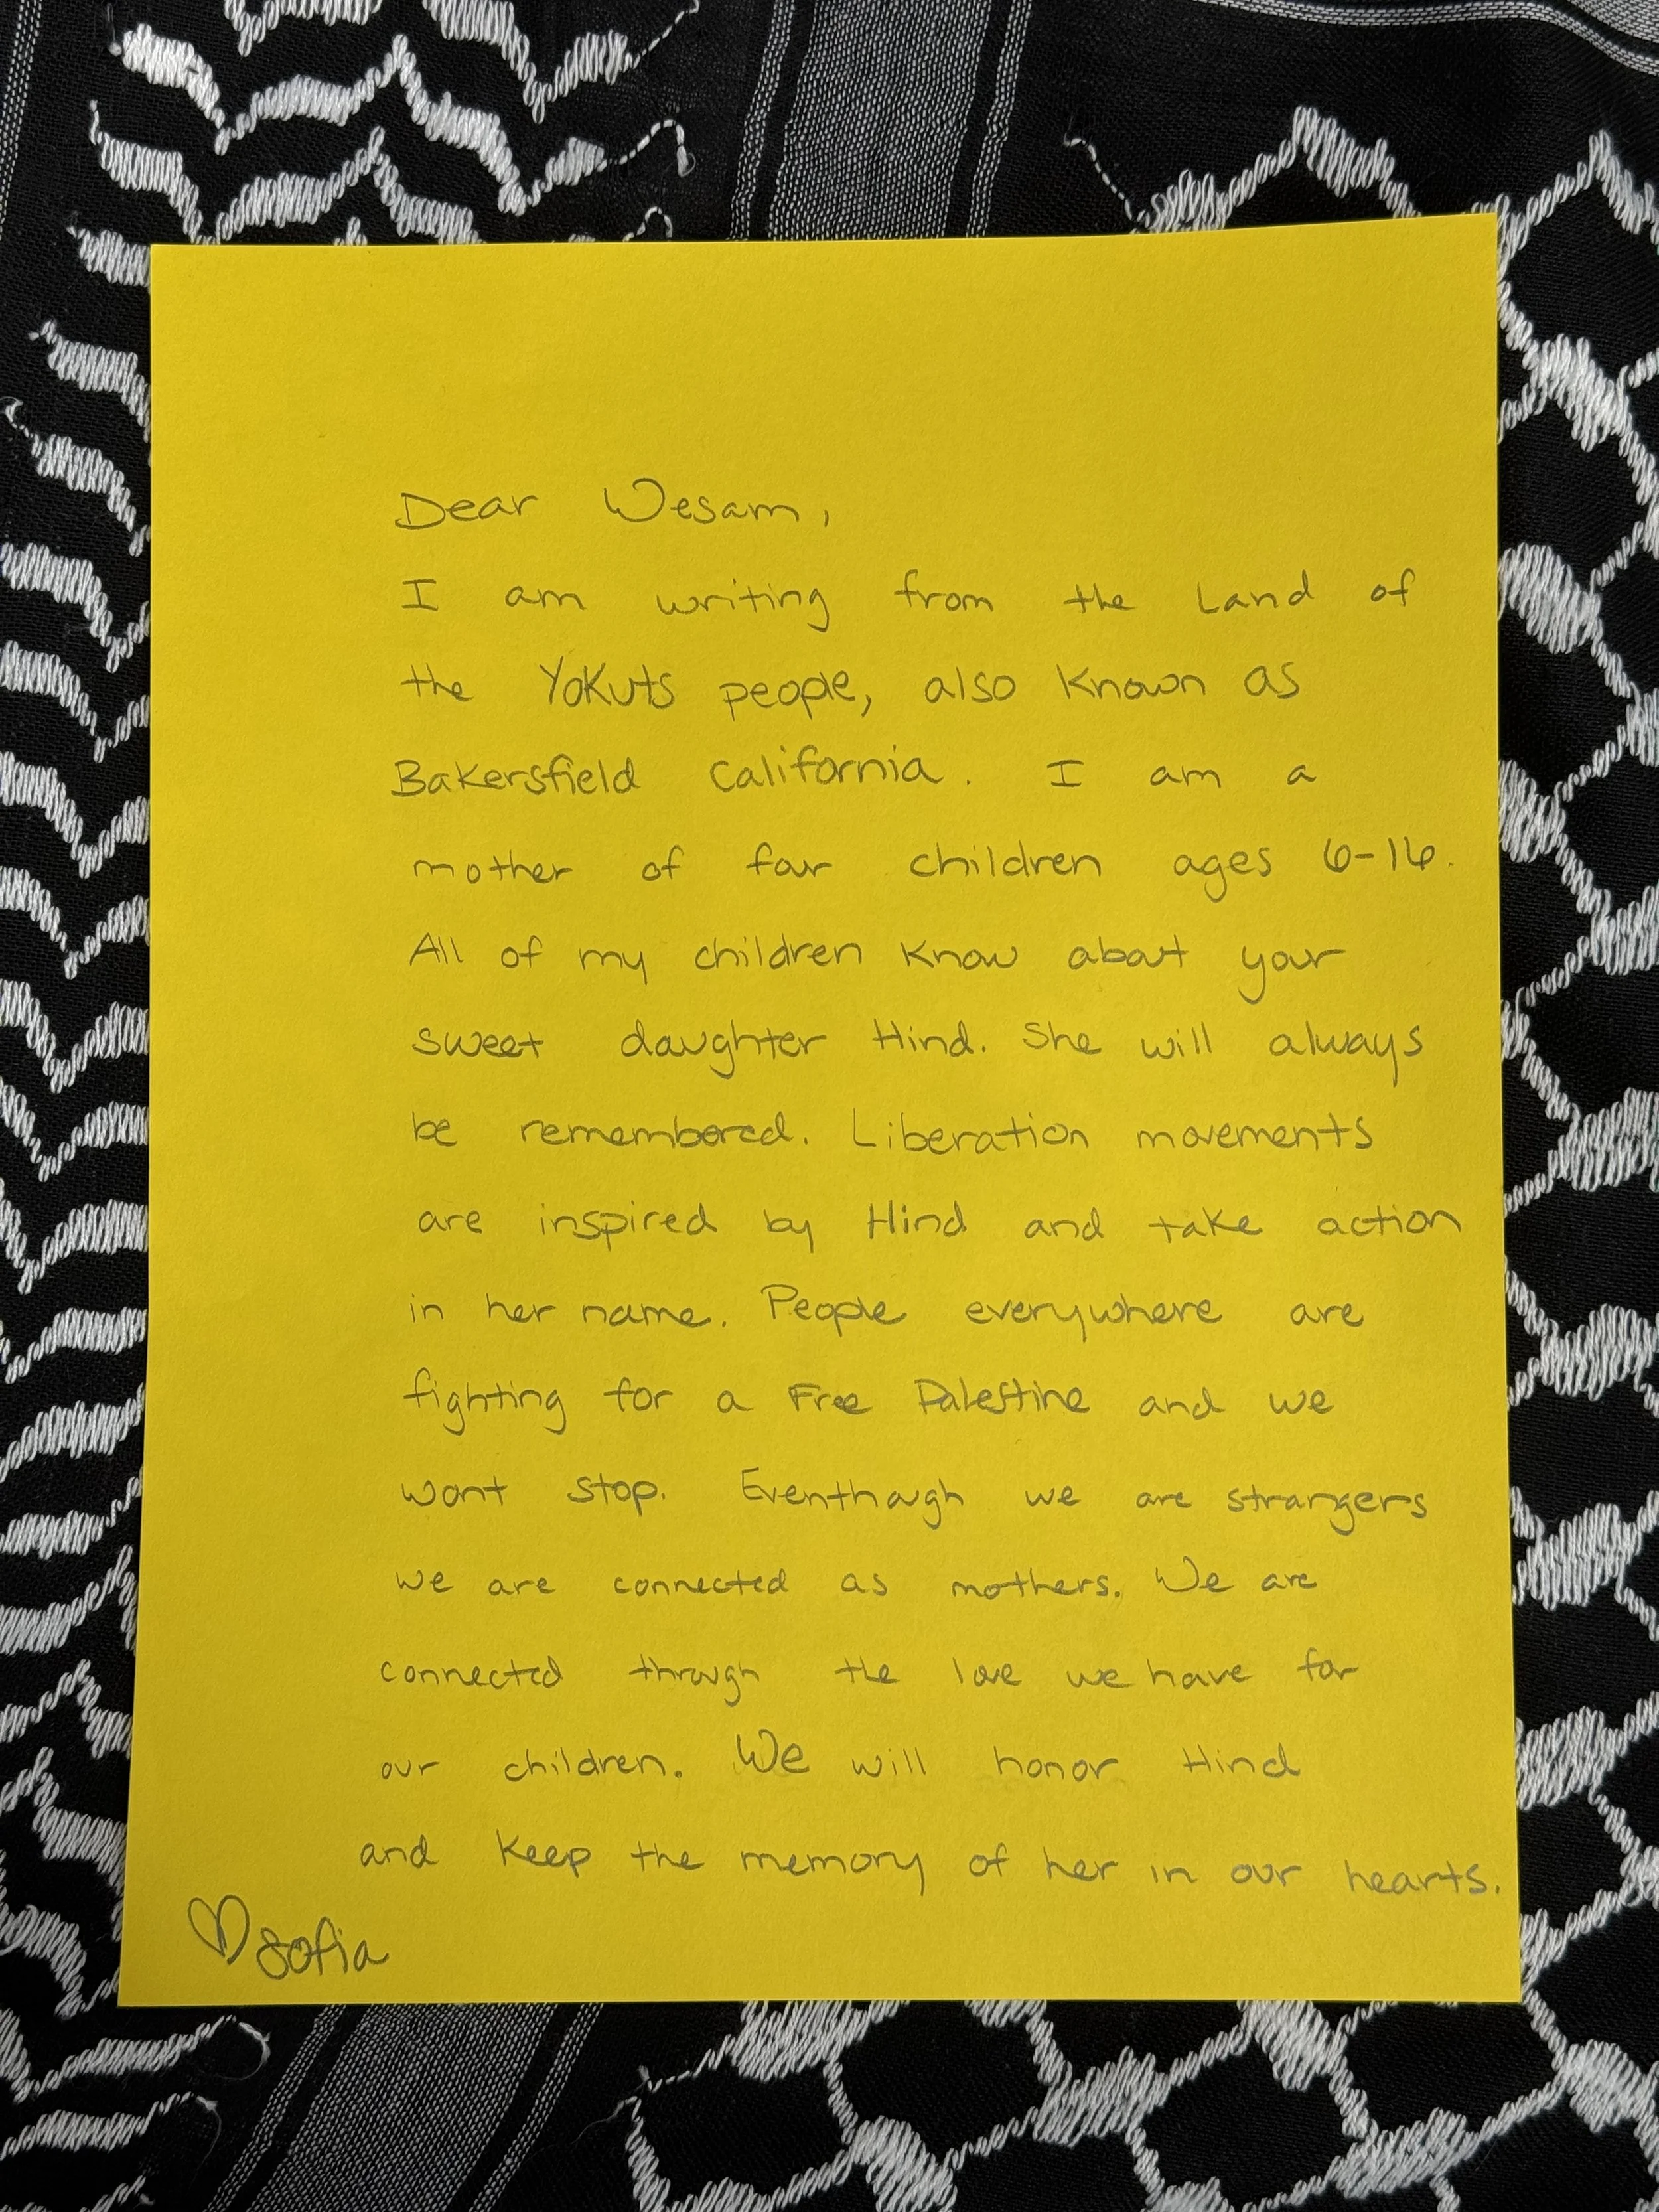 Dear Wesam,
I am writing from the Land of
the Yokuts people, also known as
Bakersfield California. I am a
mother of four children ages 6-16.
All of my children know about your
sweet daughter Hind. She will always
be remembered. Liberation movements
are inspired by Hind and take action
in her name. People everywhere are
fighting for a Free Palestine and we
wont stop. Eventhough we are strangers
we are connected as mothers. We are
connected through the love we have for
our children. We will honor Hind
and keep the memory of her in our hearts.
♡ Sofia